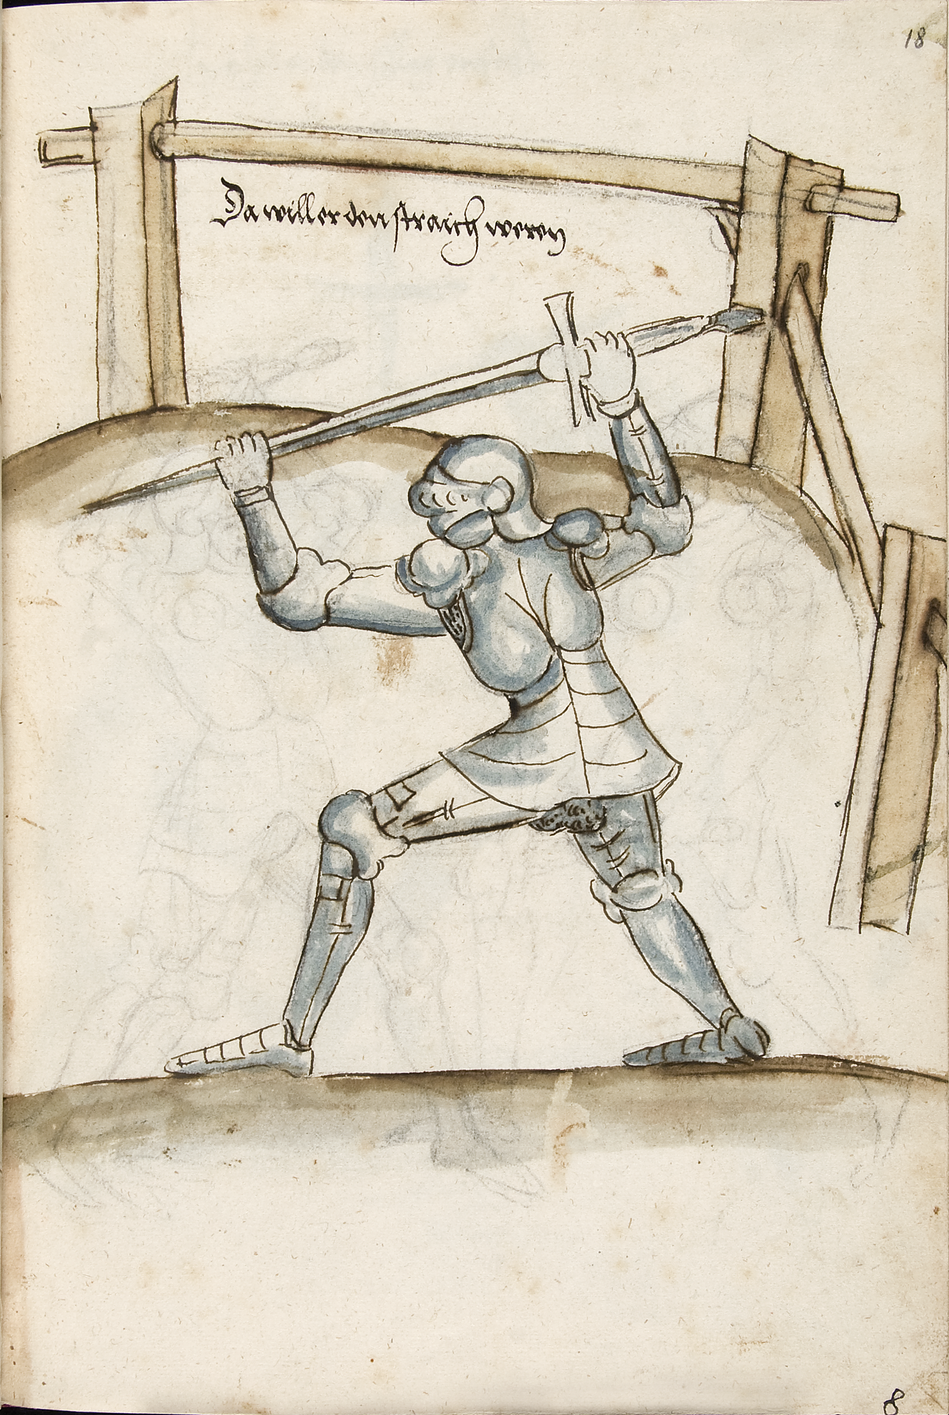 18
Da will er den straich weren
8